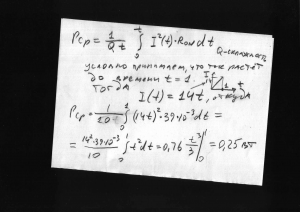 Pср = 1/Qt ∫₀ᵗ I²(t)·Ron dt
Q-скважность
условно принимаем, что ток растёт
до времени t = 1.
тогда
I(t) = 14t,
Pср = 1/10 ∫₀¹ (14t)²·39·10⁻³ dt =
= 14²·39·10⁻³/10 ∫₀¹ t² dt = 0,76 t³/3 |₀¹ = 0,25 Вт